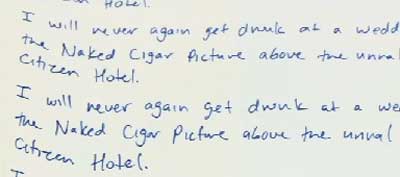 Hotel.
I will never again get drunk at a wedd
the Naked Cigar Picture above the
Citizen Hotel.
I will never again get drunk at a we
the Naked Cigar Picture above the
Citizen Hotel.
I